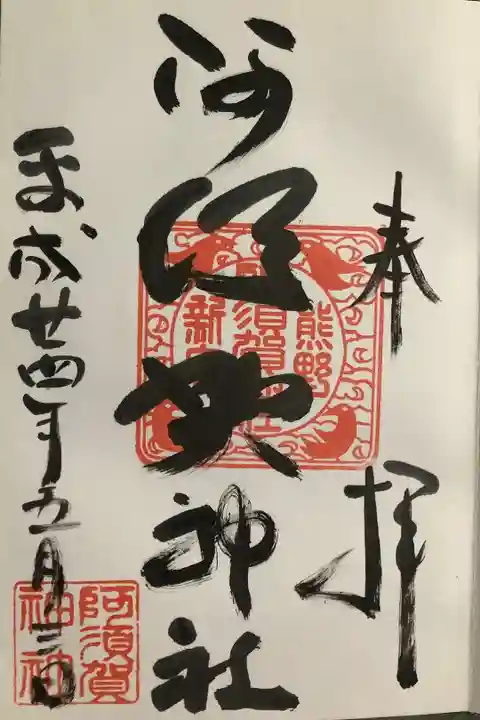 奉拝
阿須賀神社
平成廿四年五月三日
熊野
須賀
新
阿須賀
神